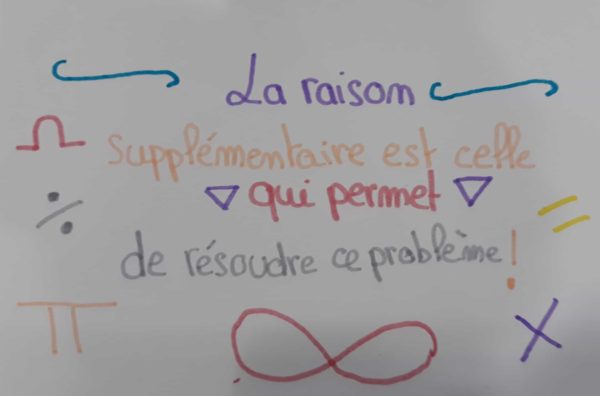 La raison
supplémentaire est celle
qui permet
de résoudre ce problème !